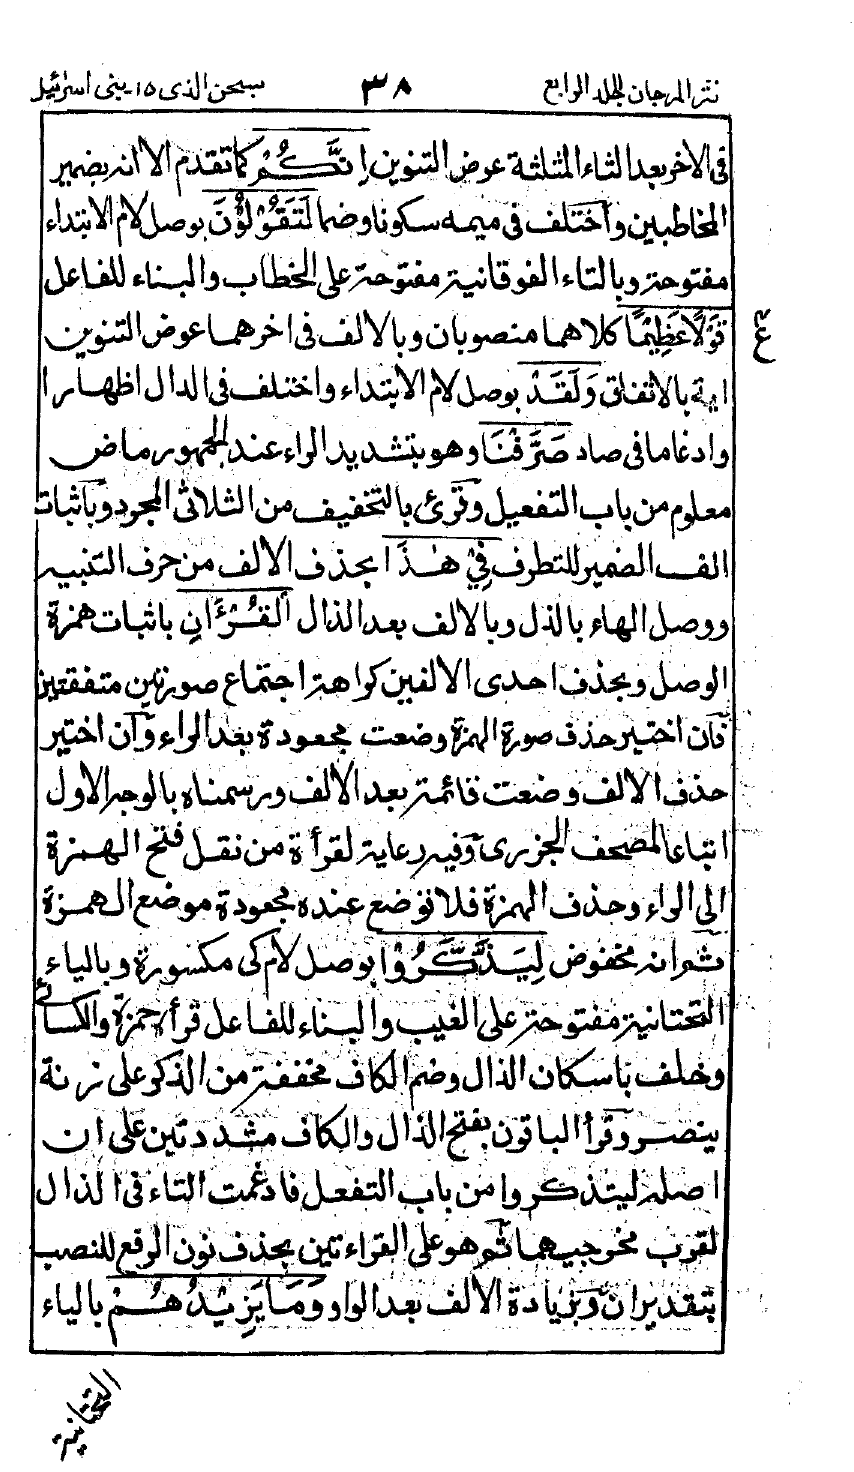 نثر المرجان المجلد الرابع
٣٨
سبحن الذى ١٥- بنى اسرائيل
فى الاخر بعد الثاء المثلثة عوض التنوين اِنَّكُمْ كما تقدم الا انه بضمير
المخاطبين واختلف فى ميمه سكونا وضما لَتَقُوْلُوْنَ بوصل لام الابتداء
مفتوحة وبالتاء الفوقانية مفتوحة على الخطاب والبناء للفاعل
قَوْلًا عَظِيْمًا كلاهما منصوبان وبالالف فى اخرهما عوض التنوين
ع
اية بالاتفاق وَلَقَدْ بوصل لام الابتداء واختلف فى الدال اظهارا
وادغاما فى صاد صَرَّفْنَا وهو بتشديد الراء عند الجمهور ماض
معلوم من باب التفعيل وقرئ بالتخفيف من الثلاثى المجرد وباثبات
الف الضمير للتطرف فِىْ هٰذَا بحذف الالف من حرف التنبيه
ووصل الهاء بالذال وبالالف بعد الذال الْقُرْءَانِ باثبات همزة
الوصل وبحذف احدى الالفين كراهة اجتماع صورتين متفقتين
فان اختير حذف صورة الهمزة وضعت مجعودة بعد الراء وان اختير
حذف الالف وضعت قائمة بعد الالف ورسمناه بالوجه الاول
اتباعا لمصحف الجزرى وفيه رعاية لقرأة من نقل فتح الهمزة
الى الراء وحذف الهمزة فلا توضع عنده مجعودة موضع الهمزة
ثم انه مخفوض لِيَذَّكَّرُوْا بوصل لام كى مكسورة وبالياء
التحتانية مفتوحة على الغيب والبناء للفاعل قرأ حمزة والكسائى
وخلف باسكان الذال وضم الكاف مخففة من الذكر على زنة
ينصر وقرأ الباقون بفتح الذال والكاف مشددتين على ان
اصله ليتذكروا من باب التفعل فادغمت التاء فى الذال
لقرب مخرجيهما ثم هو على القراءتين بحذف نون الرفع للنصب
بتقدير ان وبزيادة الالف بعد الواو وَمَا يَزِيْدُهُمْ بالياء
التحتانية